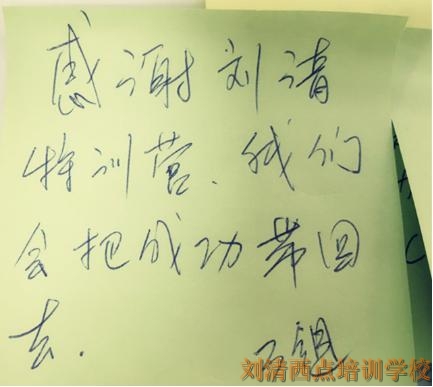 感谢刘清
特训营、我们
会把成功带回
去.
二组
刘清西点培训学校